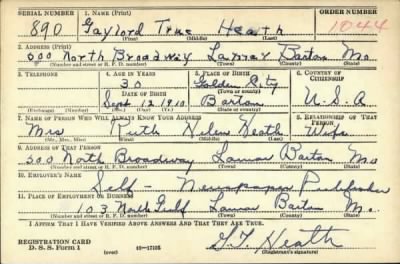 SERIAL NUMBER 1. NAME (Print) ORDER NUMBER
890 Gaylord True Heath 1044
(First) (Middle) (Last)
2. ADDRESS (Print)
500 North Broadway Lamar Barton Mo
(Number and street or R. F. D. number) (Town) (County) (State)
3. TELEPHONE 4. AGE IN YEARS 5. PLACE OF BIRTH 6. COUNTRY OF CITIZENSHIP
30 Golden City
DATE OF BIRTH (Town or county)
Sept 12 1910 Barton U.S.A
(Exchange) (Number) (Mo.) (Day) (Yr.) (State or country)
7. NAME OF PERSON WHO WILL ALWAYS KNOW YOUR ADDRESS 8. RELATIONSHIP OF THAT PERSON
Mrs Ruth Helen Heath Wife
(Mr., Mrs., Miss) (First) (Middle) (Last)
9. ADDRESS OF THAT PERSON
500 North Broadway Lamar Barton Mo
(Number and street or R. F. D. number) (Town) (County) (State)
10. EMPLOYER'S NAME
Self - Newspaper Publisher
11. PLACE OF EMPLOYMENT OR BUSINESS
103 North Gulf Lamar Barton Mo.
(Number and street or R. F. D. number) (Town) (County) (State)
I AFFIRM THAT I HAVE VERIFIED ABOVE ANSWERS AND THAT THEY ARE TRUE.
REGISTRATION CARD
D. S. S. Form 1 (over) 16-17105 G.T. Heath
(Registrant's signature)